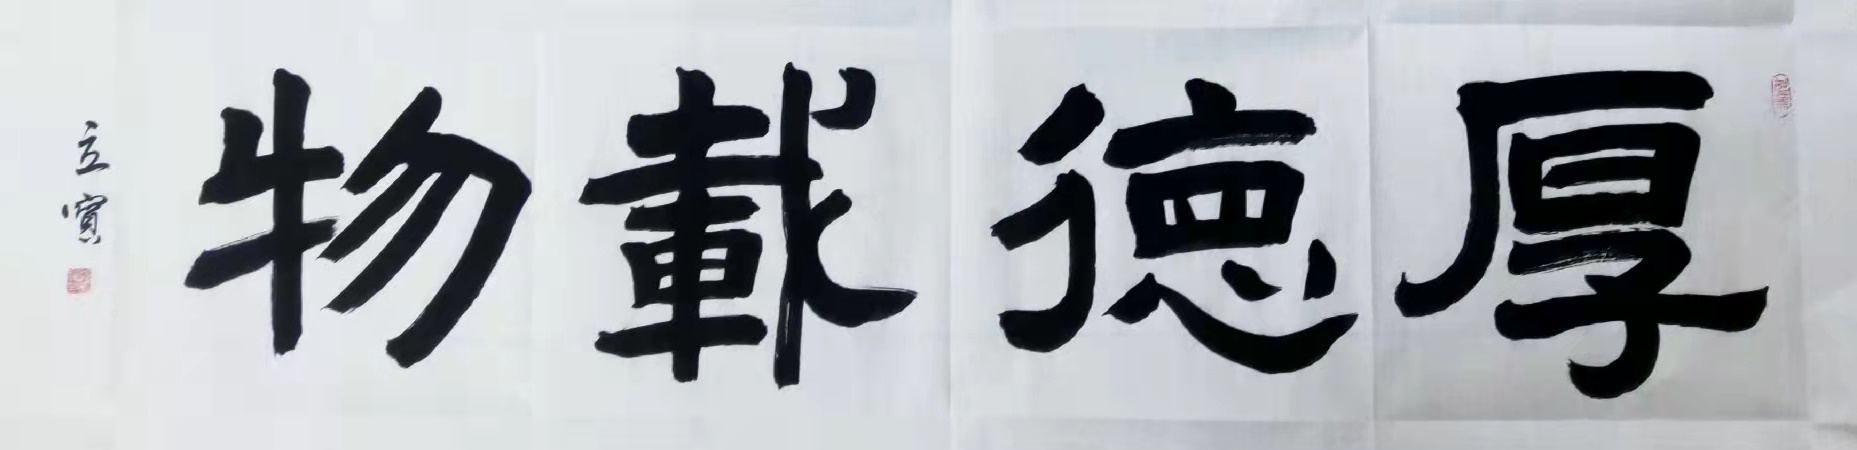 厚德載物
立寳